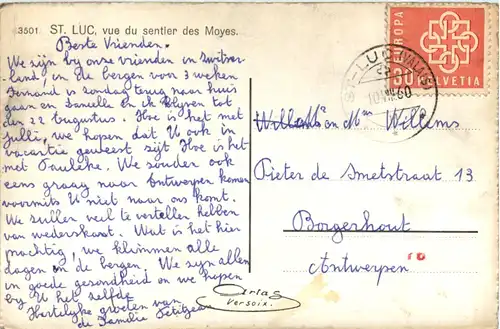 3501 ST. LUC, vue du sentier des Moyes.
Beste Vrienden.
We sijn by onze vrienden in Switser-
land, in de bergen voor 3 weken
Fernand is sondag terug naar huis
gaan en Danielle en ik blyven tot
den 22 Augustus. Hoe is het met
Julli, we hopen dat U ook in
vacantie geweest sijt. Hoe is het
met Pauleke. We souden ook
eens graag naar Antwerpen komen
voormits U niet naar ons komt.
We sullen veel te vertellen hebben
van wederskant. Wat is het hier
prachtig, we klimmen alle
dagen en de bergen. We syn allen
in goede gesondheid en we hopen
by U het selfde
Hartelijke groeten van
de Familie Petitjean
EUROPA
30 HELVETIA
ST-LUC (VALAIS)
10.VIII.60
Mr en Mme Willems
Pieter de Smetstraat 13
Borgerhout
Antwerpen
10
Artas
Versoix.